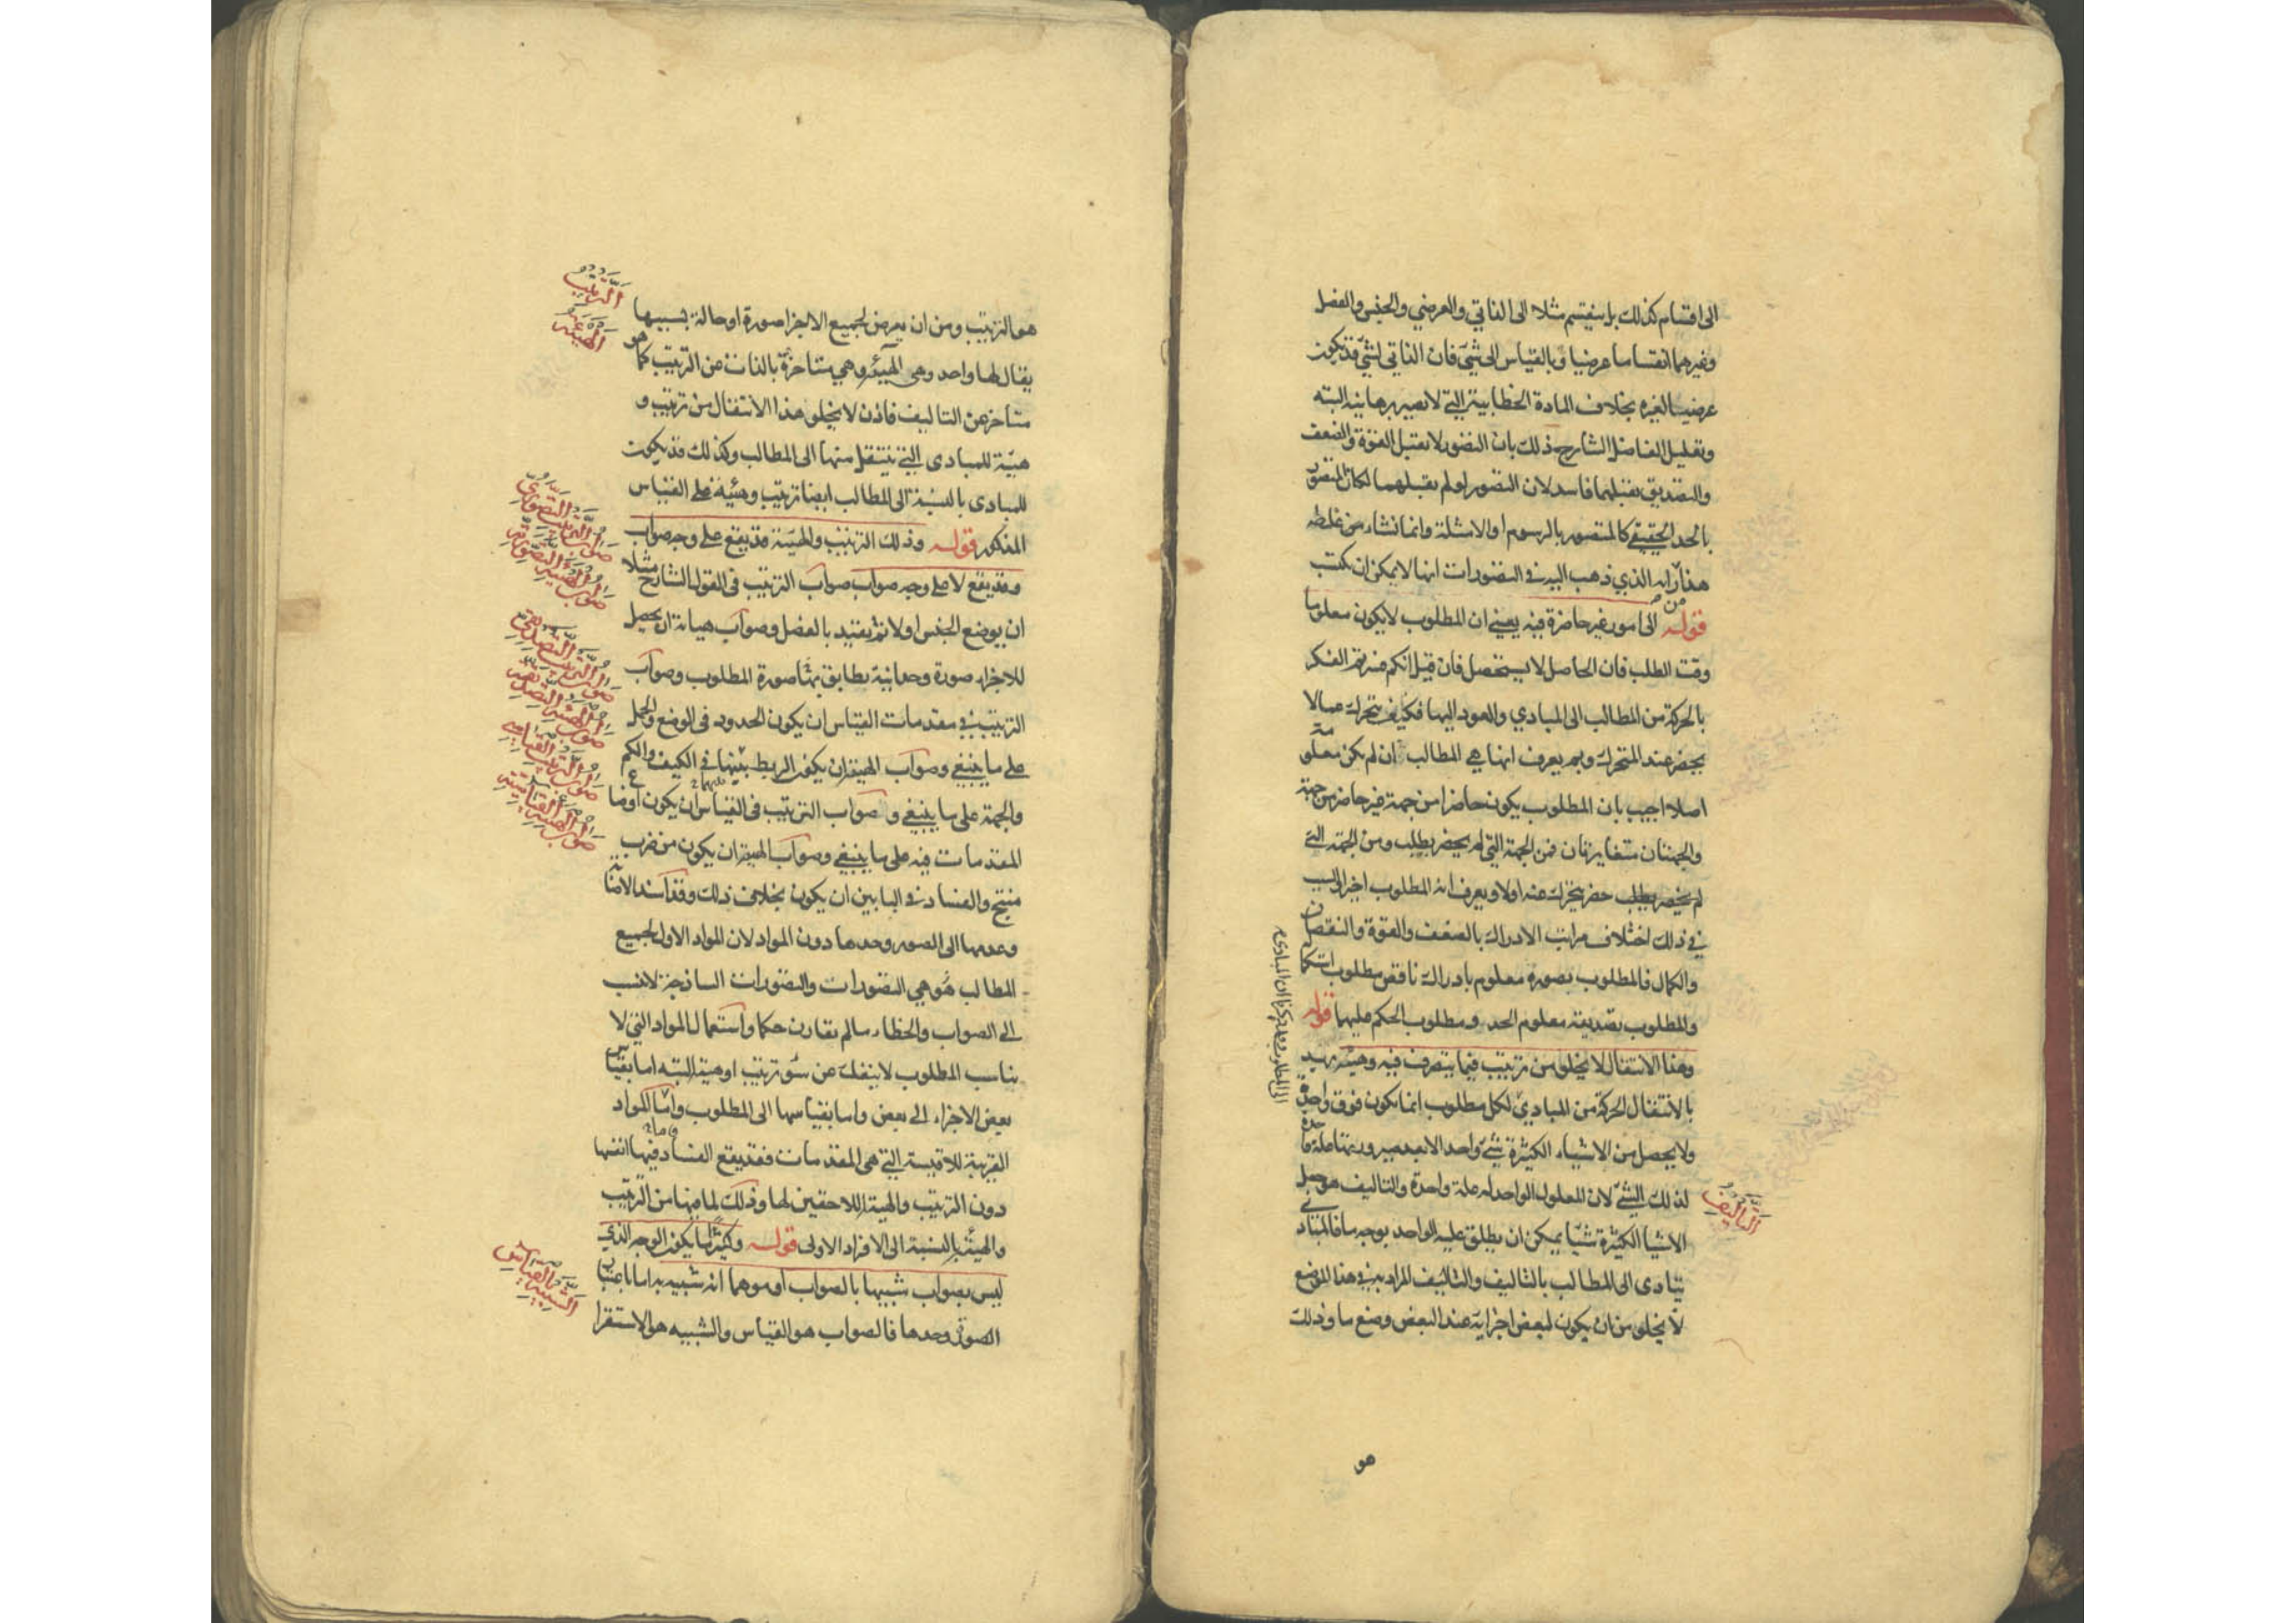 الى اقسام كذلك بل ينقسم مثلا الى الذاتي والعرضي والجنس والفصل
وغيرهما انقساما عرضيا وبالقياس الى شيء فان الذاتي لشيء قد يكون
عرضيا لغيره بخلاف المادة الخطابية التي لا تصير برهانية البته
وتعليل الفاضل الشارح ذلك بان التصور لا يقبل القوة والضعف
والتصديق يقبلهما فاسد لان التصور لو لم يقبلهما لكان المتصور
بالحد الحقيقي كالمتصور بالرسوم او الامثلة وانما نشاء من غلطه
هذا رايه الذي ذهب اليه في التصورات انها لا يمكن ان تكتسب
قوله الى امور غير حاضرة فيه يعني ان المطلوب لا يكون معلوما
وقت الطلب فان الحاصل لا يستحصل فان قيل انكم فسرتم الفكر
بالحركة من المطالب الى المبادي والعود اليها فكيف يتحرك عما لا
يحضر عند المتحرك وبم يعرف انها هي المطالب ان لم تكن معلومة
اصلا اجيب بان المطلوب يكون حاضرا من جهة غير حاضر من جهة
والجهتان متغايرتان فمن الجهة التي لم يحضر يطلب ومن الجهة التي
حضر يتحرك عنه اولا ويعرف انه المطلوب اخيرا والسبب
في ذلك اختلاف مراتب الادراك بالضعف والقوة والنقصان
والكمال فالمطلوب تصوره معلوم بادراك ناقص مطلوب استكماله
والمطلوب تصديقه معلوم الحد ومطلوب الحكم عليها قوله
وهذا الانتقال لا يخلو من ترتيب فيما يتصرف فيه وهيئة يريد
بالانتقال الحركة من المبادي لكل مطلوب انما يكون فوق واحدة
ولا يحصل من الاشياء الكثيرة شيء واحد الا بعد صيرورتها علة واحدة
لذلك الشيء لان المعلول الواحد له علة واحدة والتاليف هو جعل
الاشيا الكثيرة شيا يمكن ان يطلق عليه الواحد بوجه ما فالمبادي
يتادى الى المطالب بالتاليف والتاليف المراد به في هذا الموضع
لا يخلو من ان يكون لبعض اجزايه عند البعض وضع ما وذلك
التأليف
هو
هو الترتيب ومن ان يعرض لجميع الاجزا صورة او حالة بسببها
يقال لها واحد وهي الهيئة وهي متاخرة بالذات عن الترتيب كما هو
متاخر عن التاليف فاذن لا يخلو هذا الانتقال من ترتيب و
هيئة للمبادى التي ينتقل منها الى المطالب وكذلك قد يكون
للمبادى بالنسبة الى المطالب ايضا ترتيب وهيئة على القياس
المذكور قوله وذلك الترتيب والهيئة قد يقع على وجه صواب
وقد يقع لا على وجه صواب صواب الترتيب في القول الشارح مثلا
ان يوضع الجنس اولا ثم يقيد بالفصل وصواب هياته ان يحصل
للاجزاء صورة وحدانية يطابق بها صورة المطلوب وصواب
الترتيب في مقدمات القياس ان يكون الحدود في الوضع والحمل
على ما ينبغي وصواب الهيئة ان يكون الربط بينها في الكيف والكم
والجهة على ما ينبغي وصواب الترتيب في القياس ان يكون اوضاع
المقدمات فيه على ما ينبغي وصواب الهيئة ان يكون من ضرب
منتج والفساد في البابين ان يكون بخلاف ذلك وقد اسند الاصابة
وعدمها الى الصور وحدها دون المواد لان المواد الاول لجميع
المطالب هي التصورات والتصورات الساذجة لا تنسب
الى الصواب والخطاء ما لم تقارن حكما واستعمال المواد التي لا
تناسب المطلوب لا ينفك عن سوء ترتيب او هيئة البته اما بقياس
بعض الاجزاء الى بعض واما بقياسها الى المطلوب واما المواد
القريبة للاقيسة التي هي المقدمات فقد يقع الفساد فيها انفسها
دون الترتيب والهيئة اللاحقين لها وذلك لما فيها من الترتيب
والهيئة بالنسبة الى الافراد الاولى قوله وكثيرا ما يكون الوجه الذي
ليس بصواب شبيها بالصواب او موهما انه شبيه به اما باعتبار
الصورة وحدها فالصواب هو القياس والشبيه هو الاستقرا
الترتيب
الهيئة
صواب الترتيب التصوري
صواب الهيئة التصورية
صواب الترتيب التصديقي
صواب الهيئة التصديقية
صواب الترتيب القياسي
صواب الهيئة القياسية
الشبيه بالقياس